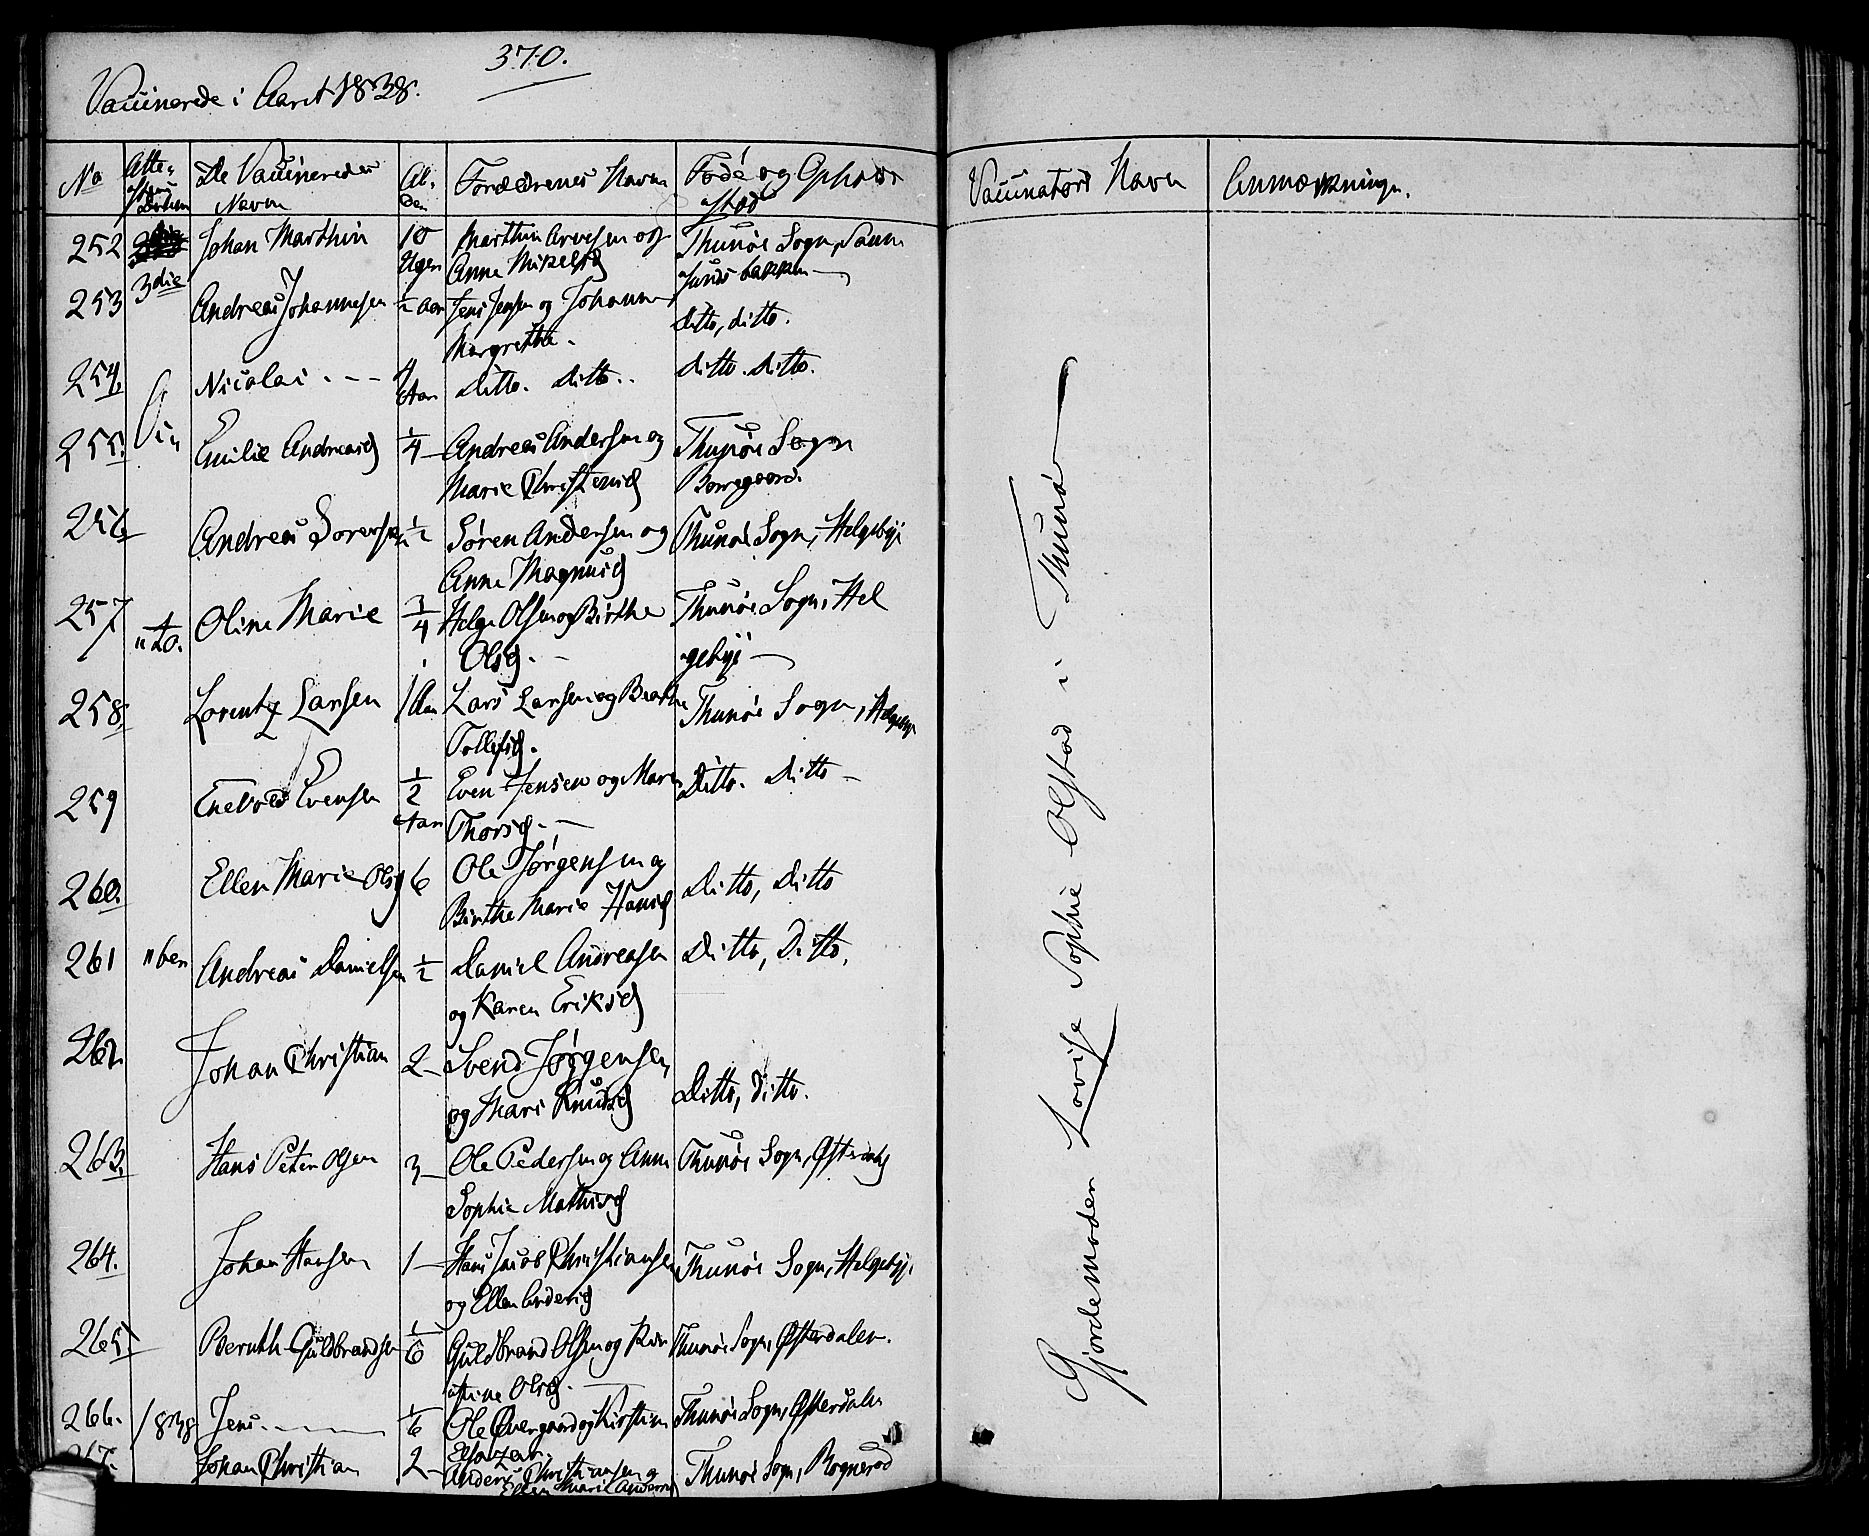 370.
Vaccinerede i Aaret 1838.
No
Atte-
De Vaccineredes
Navn
Al-
der
Forældrenes Navn
Føde og Opholds
sted
Vaccinators Navn
Anmærkninger.
252 Johan Marthin 10 Uger Marthin Arvesen og Thunøe Sogn,
Anne Mikelsd
3die
253 Andreas Johannesen ½ Aar Jens Jensen og Johanne Ditto, ditto.
Margrethe.
254. Nicolai - - - 4 Aar Ditto. Ditto.. ditto. ditto.
255. Emilie Andreasd ¼ - Andreas Andersen og Thunøe Sogn
Marie Christensd Borregaard.
256 Andreas Sørensen ½ Søren Andersen og Thunøe Sogn, Helgebye
Anne Magnusd
257 Oline Marie ¾ Helge Olsen og Birthe Thunøe Sogn, Hel
Olsd. - gebye -
258. Lorentz Larsen 1 Aar Lars Larsen og Berthe Thunøe Sogn, Helgebye
Tollefsd.
259 Enevold Evensen ½ Aar Even Jensen og Mari Ditto. Ditto -
Thorsd. -
260. Ellen Marie Olsd 6 Ole Jørgensen og Ditto, Ditto
Birthe Marie Hansd
261 Andreas Danielsen ½ Daniel Andreasen Ditto, Ditto,
og Karen Eriksd
262. Johan Christian 2 - Svend Jørgensen Ditto, ditto.
og Mari Knudsd
263. Hans Peter Olsen 3 - Ole Pedersen og Anne Thunøe Sogn,
Sophie Mathisd
264. Johan Hansen 1 - Hans Jacob Christiansen Thunøe Sogn, Helgebye.
og Ellen Andersd
265. Bernth Guldbrandsen 1/6 Guldbrand Olsen og Kir Thunøe Sogn, Østerdalen.
stine Olsd. -
266. 1838 Jens - - - - 1/6 Ole Overgaard og Kirstine Thunøe Sogn, Østerdalen
267. Johan Christian 2 - Anders Christiansen og Thunøe Sogn, Rognerød
Ellen Marie Andersd
Gjordemoder Lovise Sophie Olstad i Thunø